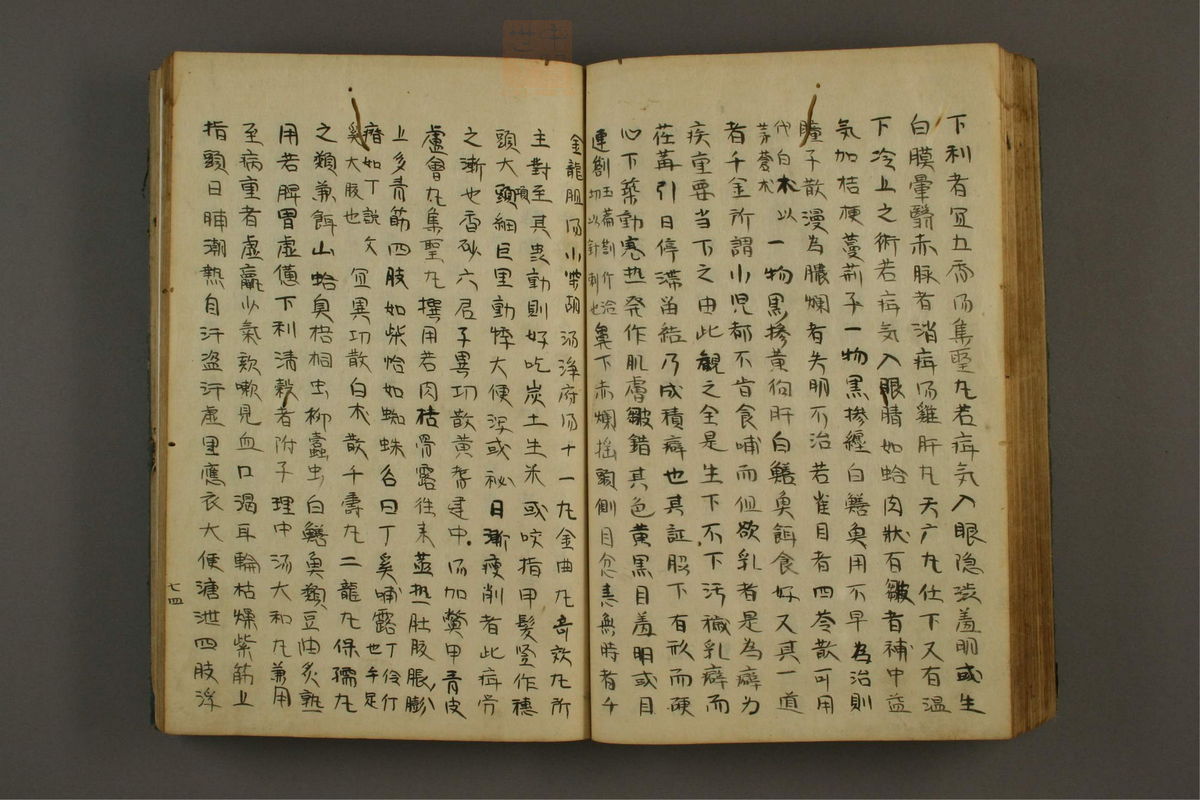 下利者宜五香湯集聖丸若疳気入眼隐渋羞明或生
白膜暈翳赤脉者消疳湯雞肝丸天广丸仕下又有温
下冷上之術若疳気入眼睛如蛤肉狀有皺者補中益
気加桔梗蔓荊子一物黒摻纏白鱔奐用不早為治則
瞳子散漫為膿爛者失明不治若雀目者四苓散可用
代白朮以蒼朮一物黒摻黄狗肝白鱔奐餌食好又其一道
者千金所謂小児都不肯食哺而但欲乳者是為癖為
疾重要当下之由此觀之全是生下不下汚穢乳癖而
荏苒引日停滞畄結乃成積癖也其証臍下有形而硬
心下築動寒热発作肌膚皺錯其色黄黒目羞明或目
連劄鼻下赤爛揺頭側目忿恚無時者千
金龍胆湯小柴胡湯浄府湯十一丸金曲丸奇效丸所
主對至其虫動則好吃炭土生米或咬指甲髮竪作穂
頭大頸細巨里動悸大便溏或秘日漸痩削者此疳労
之漸也香砂六君子異功散黄耆建中湯加鱉甲青皮
盧會丸集聖丸撰用若肉枯骨露往来蒸热肚腹脹膨
上多青筋四肢如柴恰如蜘蛛名曰丁奚哺露丁伶仃也手足
瘠如丁説文奚大腹也宜異功散白朮散千壽丸二龍丸保孺丸
之類兼餌山蛤臭梧桐虫柳蠹虫白鱔奐類豆油炙熟
用若脾胃虚憊下利清穀者附子理中湯大和丸兼用
至病重者虚羸少氣欬嗽見血口渴耳輪枯燥紫筋上
指頭日晡潮熱自汗盗汗虚里應衣大便溏泄四肢浮
七四